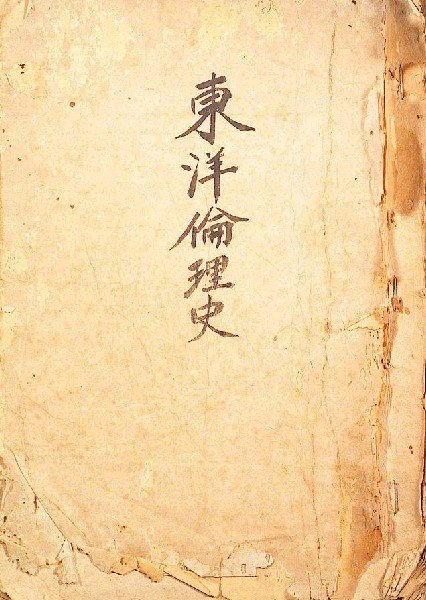 東洋倫理史